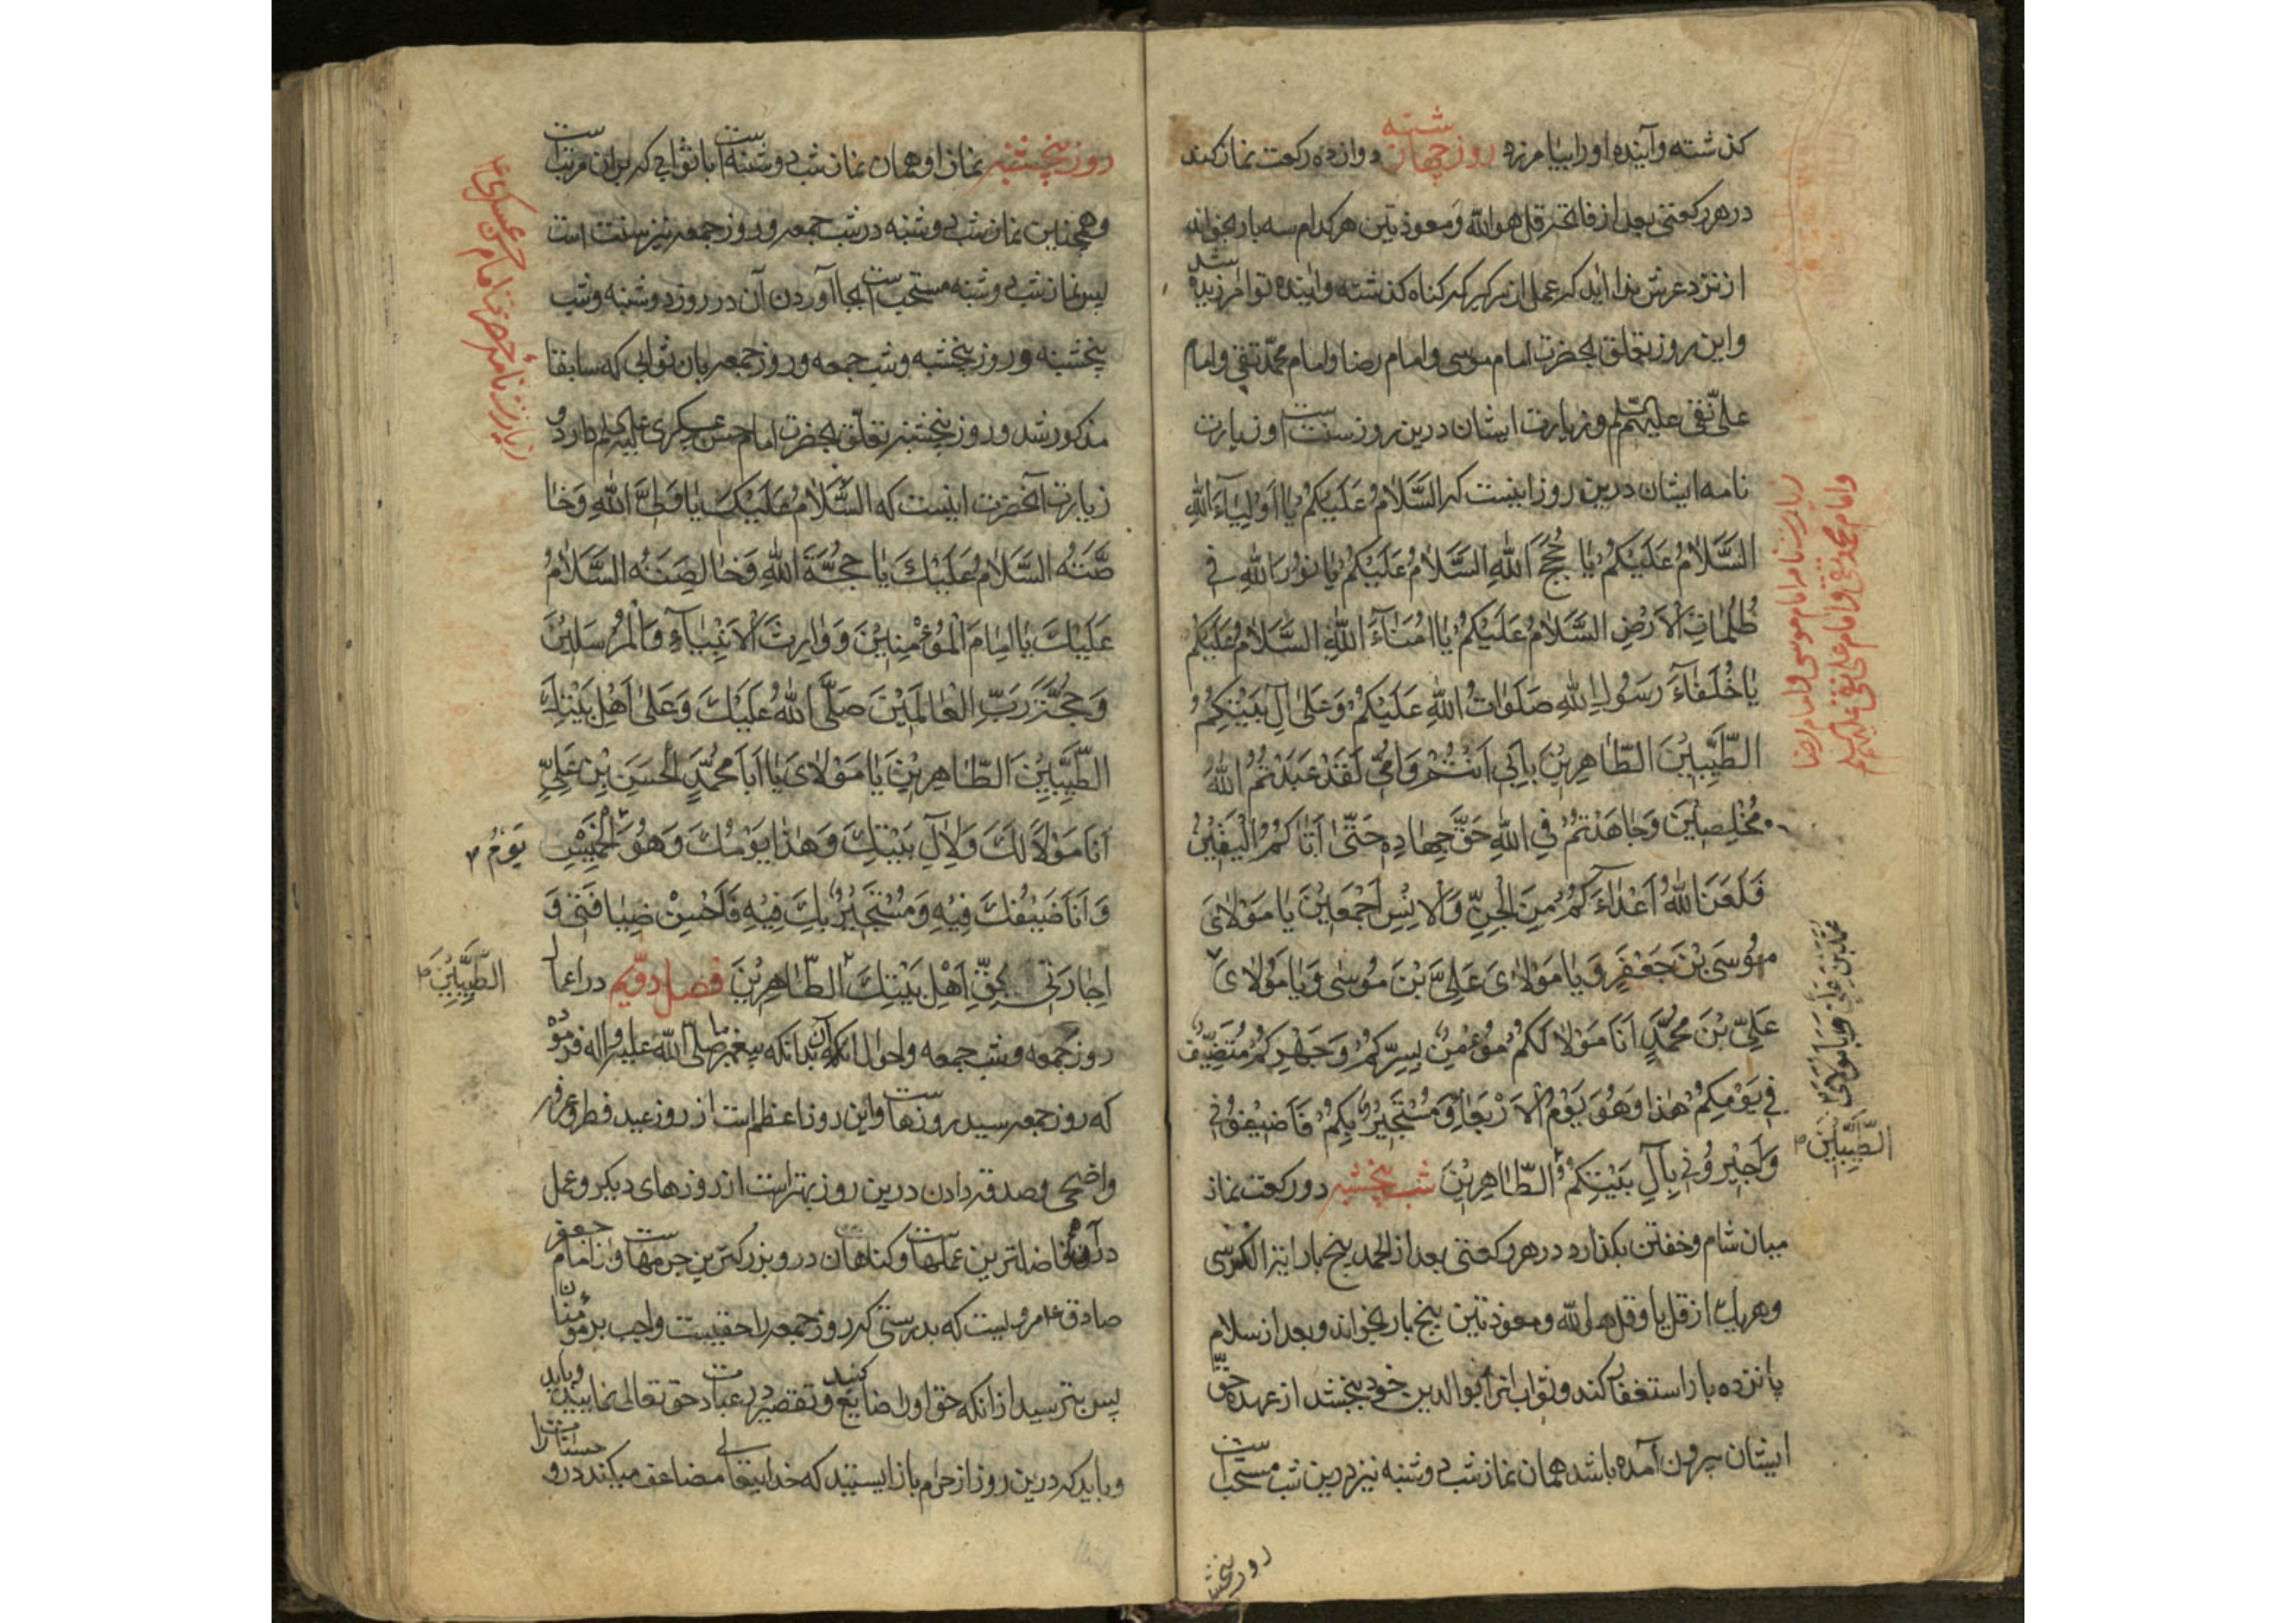 گذشته و آینده او را بیامرزد روز چهارشنبه دوازده رکعت نماز کند
در هر رکعتی بعد از فاتحه قل هو الله و معوذتین هر کدام سه بار بخواند
از نزد عرش ندا آید که عمل از سر گیر که گناه گذشته و آینده تو آمرزیده شد
و این روز تعلق بحضرت امام موسی و امام رضا و امام محمّد تقی و امام
علی نقی علیهم و زیارت ایشان درین روز سنت است و زیارت
نامه ایشان درین روز اینست که السَّلَامُ عَلَيْكُمْ يَا أَوْلِيَاءَ اللهِ
السَّلَامُ عَلَيْكُمْ يَا حُجَجَ اللهِ السَّلَامُ عَلَيْكُمْ يَا نُورَ اللهِ فِي
ظُلُمَاتِ الْأَرْضِ السَّلَامُ عَلَيْكُمْ يَا أُمَنَاءَ اللهِ السَّلَامُ عَلَيْكُمْ
يَا خُلَفَاءَ رَسُولِ اللهِ صَلَوَاتُ اللهِ عَلَيْكُمْ وَعَلَى آلِ بَيْتِكُمُ
الطَّيِّبِينَ الطَّاهِرِينَ بِأَبِي أَنْتُمْ وَأُمِّي لَقَدْ عَبَدْتُمُ اللهَ
مُخْلِصِينَ وَجَاهَدْتُمْ فِي اللهِ حَقَّ جِهَادِهِ حَتَّى أَتَاكُمُ الْيَقِينُ
فَلَعَنَ اللهُ أَعْدَاءَكُمْ مِنَ الْجِنِّ وَالْإِنْسِ أَجْمَعِينَ يَا مَوْلَايَ
مُوسَى بْنَ جَعْفَرٍ وَيَا مَوْلَايَ عَلِيَّ بْنَ مُوسَى وَيَا مَوْلَايَ
عَلِيَّ بْنَ مُحَمَّدٍ أَنَا مَوْلًا لَكُمْ مُؤْمِنٌ بِسِرِّكُمْ وَجَهْرِكُمْ مُتَضَيِّفٌ
فِي يَوْمِكُمْ هَذَا وَهُوَ يَوْمُ الْأَرْبِعَاءِ وَمُسْتَجِيرٌ بِكُمْ فَأَضِيفُونِي
وَأَجِيرُونِي بِآلِ بَيْتِكُمُ الطَّاهِرِينَ شب پنجشنبه دو رکعت نماز
میان شام و خفتن بگذارد در هر رکعتی بعد از الحمد پنج بار آیة الکرسی
و هر یک از قل یا و قل هو الله و معوذتین پنج بار بخواند و بعد از سلام
پانزده بار استغفار کند و ثواب آنرا بوالدین خود بخشد از عهده حقّ
ایشان بیرون آمده باشد همان نماز شب دوشنبه نیز درین شب مستحب است
روز پنجشنبه
زیارت نامه امام موسی و امام رضا
و امام محمد تقی و امام علی نقی علیهم السلام
مُحَمَّدَ بْنَ عَلِيٍّ وَيَا مَوْلَايَ
الطَّيِّبِينَ
روز پنجشنبه نماز او همان نماز شب دوشنبه است با ثوابی که بر آن مرتبست
و همچنین نماز شب دوشنبه در شب جمعه و روز جمعه نیز سنت است
پس نماز شب دوشنبه مستحب است بجا آوردن آن در روز دوشنبه و شب
پنجشنبه و روز پنجشنبه و شب جمعه و روز جمعه بآن ثوابی که سابقا
مذکور شد و روز پنجشنبه تعلّق بحضرت امام حسن عسکری دارد و
زیارت آنحضرت اینست که السَّلَامُ عَلَيْكَ يَا وَلِيَّ اللهِ وَخَا
صَّتَهُ السَّلَامُ عَلَيْكَ يَا حُجَّةَ اللهِ وَخَالِصَتَهُ السَّلَامُ
عَلَيْكَ يَا إِمَامَ الْمُؤْمِنِينَ وَوَارِثَ الْأَنْبِيَاءِ وَالْمُرْسَلِينَ
وَحُجَّةَ رَبِّ الْعَالَمِينَ صَلَّى اللهُ عَلَيْكَ وَعَلَى أَهْلِ بَيْتِكَ
الطَّيِّبِينَ الطَّاهِرِينَ يَا مَوْلَايَ يَا أَبَا مُحَمَّدٍ الْحَسَنَ بْنَ عَلِيٍّ
أَنَا مَوْلًا لَكَ وَلِآلِ بَيْتِكَ وَهَذَا يَوْمُكَ وَهُوَ الْخَمِيسِ
وَأَنَا ضَيْفُكَ فِيهِ وَمُسْتَجِيرٌ بِكَ فِيهِ فَأَحْسِنْ ضِيَافَتِي وَ
إِجَارَتِي بِحَقِّ أَهْلِ بَيْتِكَ الطَّاهِرِينَ فصل دوّیم در اعمال
روز جمعه و شب جمعه و احوال آن بدانکه پیغمبر ما صلّی الله علیه و اله فرموده
که روز جمعه سید روزهاست و این روز اعظم است از روز عید فطر و عرفه
و اضحی و صدقه دادن درین روز بهتر است از روزهای دیگر و عمل
فاضلترین عملهاست و گناهان در و بزرگترین جرمهاست و از امام جعفر
صادق ع مرویست که بدرستی که روز جمعه را حقیست واجب بر مؤمنان
پس بترسید از آنکه حق او را ضایع کنید و تقصیر در عبادت حق تعالی نمایید و باید
و باید که درین روز از حرام باز ایستید که خدایتعالی مضاعف میکند درو حسنات را
زیارت نامه حضرت امام حسن عسکری ع
يَوْمُ
الطَّيِّبِينَ